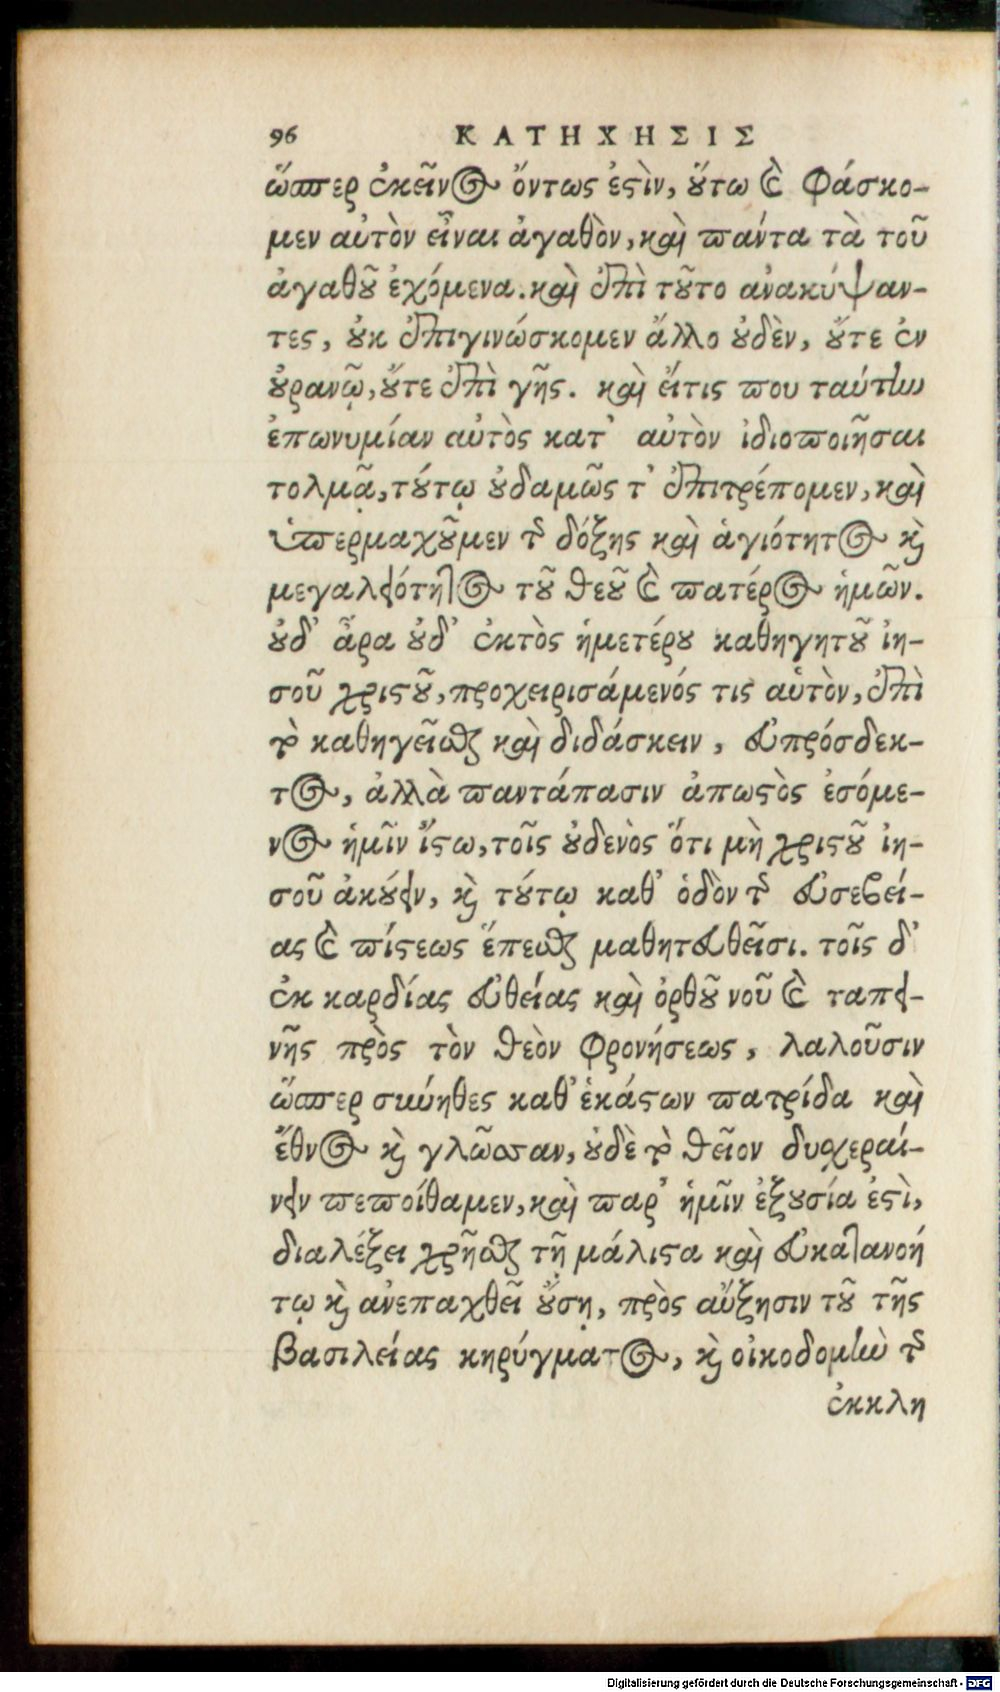 96 ΚΑΤΗΧΗΣΙΣ
ὥσπερ ἐκεῖνος ὄντως ἐστὶν, ὅυτω καὶ φάσκο-
μεν αὐτὸν εἶναι ἀγαθὸν, καὶ πάντα τὰ τοῦ
ἀγαθοῦ ἐχόμενα. καὶ ἐπὶ τοῦτο ἀνακύψαν-
τες, οὐκ ἐπιγινώσκομεν ἄλλο οὐδὲν, οὔτε ἐν
οὐρανῷ, οὔτε ἐπὶ γῆς. καὶ εἴτις που ταύτην
ἐπωνυμίαν αὐτὸς κατ' αὐτὸν ἰδιοποιῆσαι
τολμᾷ, τούτῳ οὐδαμῶς τ' ἐπιτρέπομεν, καὶ
ὑπερμαχοῦμεν τῆς δόξης καὶ ἁγιότητος καὶ
μεγαλειότητος τοῦ θεοῦ καὶ πατέρος ἡμῶν.
οὐδ' ἆρα οὐδ' ἐκτὸς ἡμετέρου καθηγητοῦ ἰη-
σοῦ χριστοῦ, προχειρισάμενός τις αὑτὸν, ἐπὶ
τὸ καθηγεῖσθαι καὶ διδάσκειν, εὐπρόσδεκ-
τος, ἀλλὰ παντάπασιν ἀπωστὸς ἐσόμε-
νος ἡμῖν ἴστω, τοῖς οὐδενὸς ὅτι μὴ χριστοῦ ἰη-
σοῦ ἀκούειν, καὶ τούτῳ καθ' ὁδὸν τῆς εὐσεβεί-
ας καὶ πίστεως ἕπεσθαι μαθητευθεῖσι. τοῖς δ'
ἐκ καρδίας εὐθείας καὶ ὀρθοῦ νοῦ καὶ ταπει-
νῆς πρὸς τὸν θεὸν φρονήσεως, λαλοῦσιν
ὥσπερ συνήθες καθ' ἑκάστων πατρίδα καὶ
ἔθνος καὶ γλῶσσαν, οὐδὲ τὸ θεῖον δυσχεραί-
νειν πεποίθαμεν, καὶ παρ' ἡμῖν ἐξουσία ἐστὶ,
διαλέξει χρῆσθαι τῇ μάλιστα καὶ εὐκατανοή
τῳ καὶ ἀνεπαχθεῖ οὔσῃ, πρὸς αὔξησιν τοῦ τῆς
βασιλείας κηρύγματος, καὶ οἰκοδομὴν τῆς
ἐκκλη
Digitalisierung gefördert durch die Deutsche Forschungsgemeinschaft - DFG